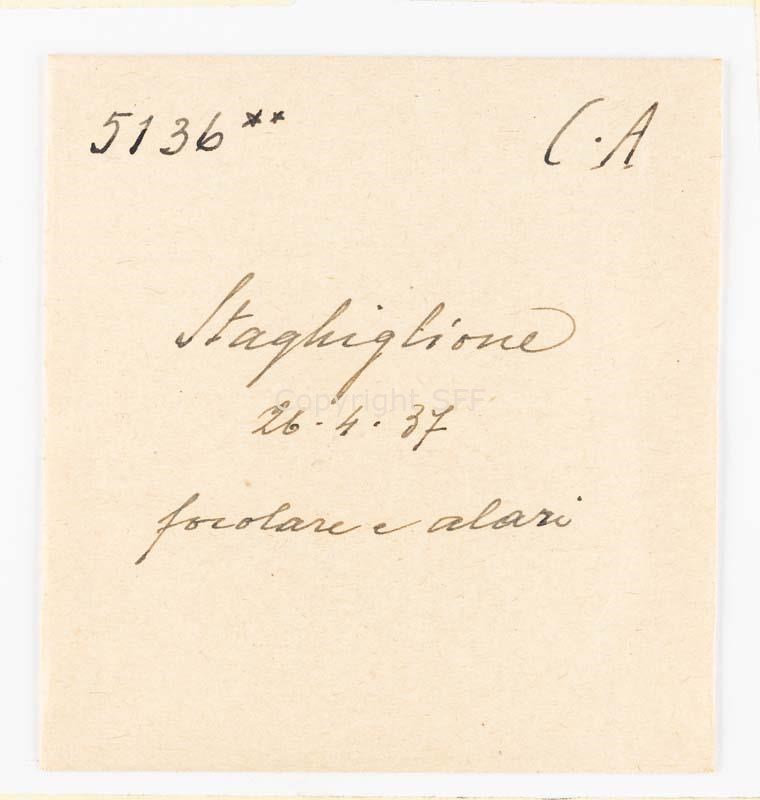 5136** C.A
Staghiglione
Copyright SFF
26.4.37
focolare e alari